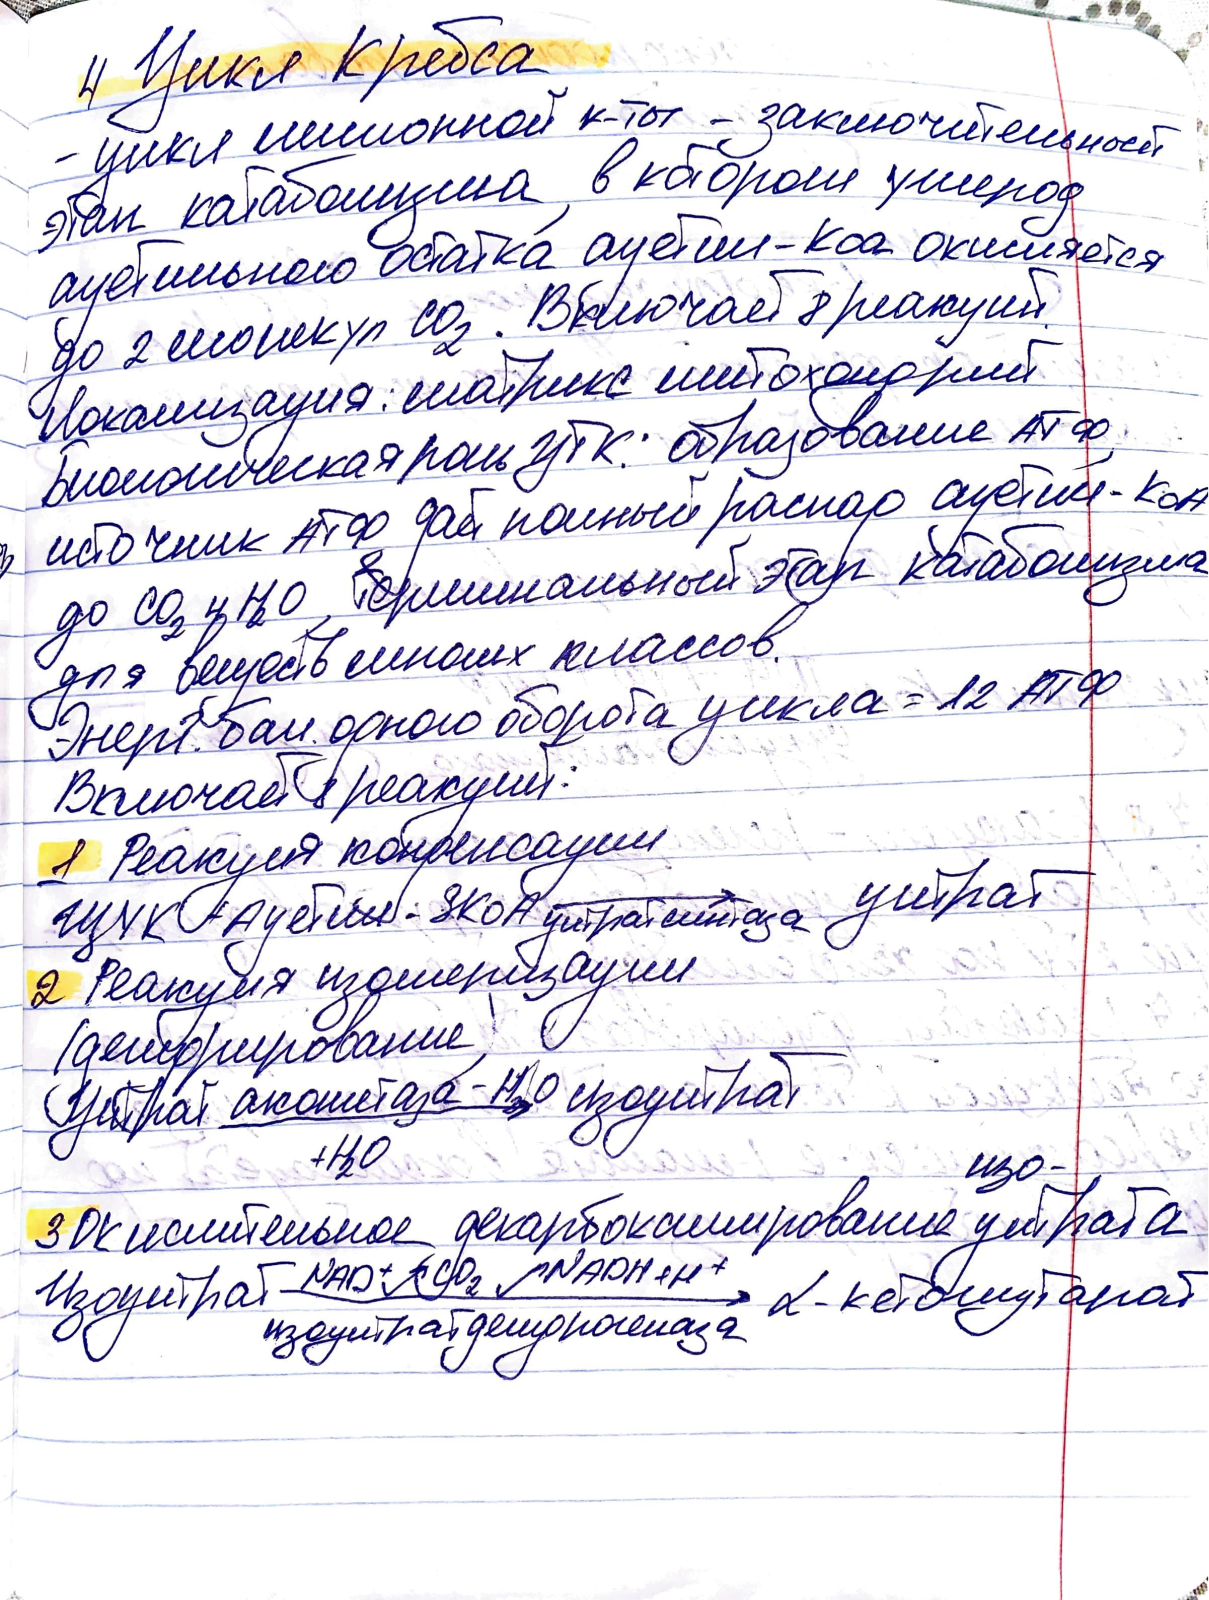 4 Цикл Кребса
- цикл лимонной к-ты - заключительный
этап катаболизма, в котором углерод
ацетильного остатка ацетил-КоА окисляется
до 2 молекул CO2. Включает 8 реакций.
Локализация: матрикс митохондрий
Биологическая роль ЦТК: образование АТФ,
источник АТФ даёт полный распад ацетил-КоА
до CO2 и H2O, терминальный этап катаболизма
для веществ многих классов.
Энерг. бал. одного оборота цикла = 12 АТФ
Включает 8 реакций:
1 Реакция конденсации
ЩУК + Ацетил-SКоА цитратсинтаза цитрат
2 Реакция изомеризации
(дегидрирование)
Цитрат аконитаза -H2O изоцитрат
+H2O
изо-
3 Окислительное декарбоксилирование цитрата
Изоцитрат NAD+ CO2 NADH+H+ α-кетоглутарат
изоцитратдегидрогеназа